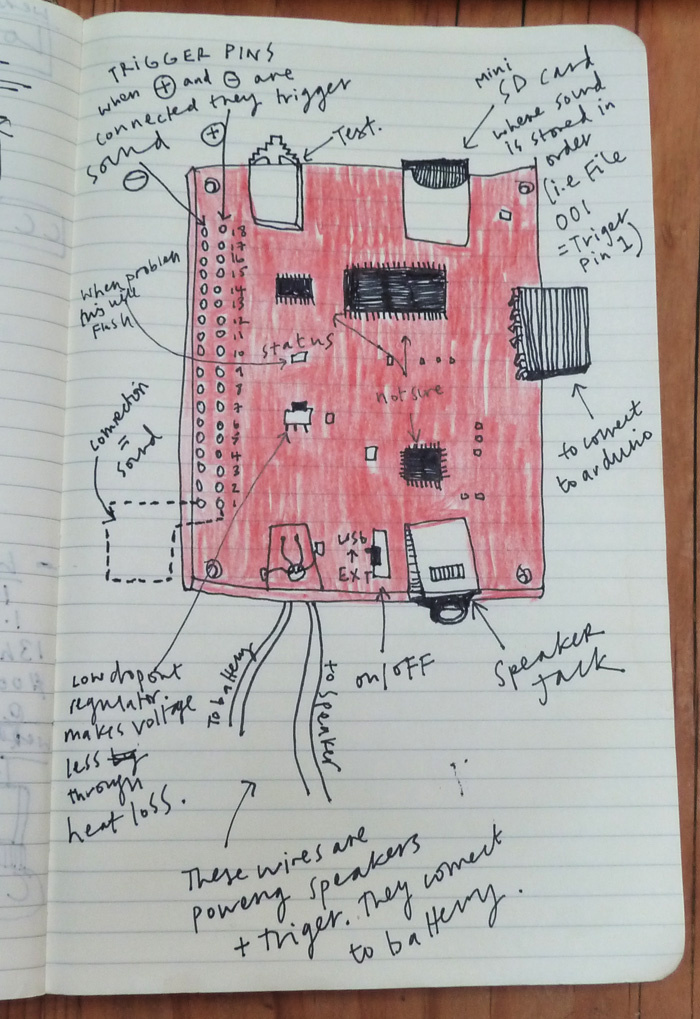 TRIGGER PINS
when ⊕ and ⊖ are
connected they trigger
sound
⊕
⊖
Test.
mini
SD card
where sound
is stored in
order
(i.e File
001
=Triger
Pin 1)
18
17
16
15
14
13
12
11
10
9
8
7
6
5
4
3
2
1
when problem
this will
Flash
status
not sure
connection
=
sound
to connect
to arduino
USB
↑
EXT
on/OFF
Speaker
Jack
Low dropout
regulator.
makes voltage
less
through
heat loss.
To battery
to speaker
These wires are
powering speakers
+ triger. They connect
to battery.